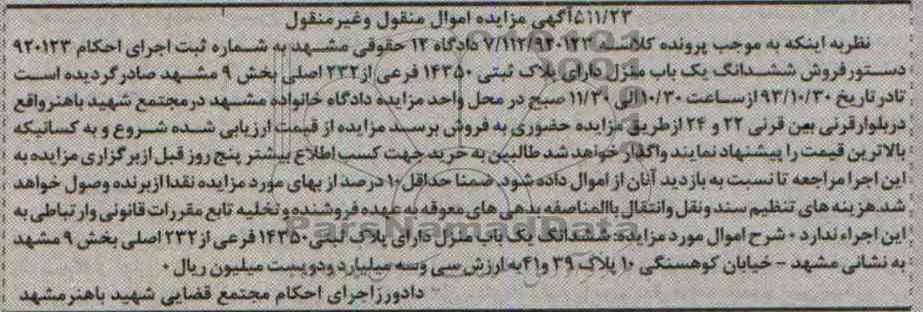 ۵۱۱/۲۳آگهی مزایده اموال منقول وغیرمنقول
نظربه اینکه به موجب پرونده کلاسه ۷/۱۱۲/۹۲۰۱۲۳ دادگاه ۱۲ حقوقی مشهد به شماره ثبت اجرای احکام ۹۲۰۱۲۳
دستورفروش ششدانگ یک باب منزل دارای پلاک ثبتی ۱۴۳۵۰ فرعی از۲۳۲ اصلی بخش ۹ مشهد صادرگردیده است
تادرتاریخ ۹۳/۱۰/۳۰ ازساعت ۱۰/۳۰الی ۱۱/۳۰ صبح در محل واحد مزایده دادگاه خانواده مشهد درمجتمع شهید باهنرواقع
دربلوارقرنی بین قرنی ۲۲ و ۲۴ ازطریق مزایده حضوری به فروش برسد مزایده از قیمت ارزیابی شده شروع و به کسانیکه
بالاترین قیمت را پیشنهاد نمایند واگذار خواهد شد طالبین به خرید جهت کسب اطلاع بیشتر پنج روز قبل ازبرگزاری مزایده به
این اجرا مراجعه تا نسبت به بازدید آنان از اموال داده شود. ضمنا حداقل ۱۰ درصد از بهای مورد مزایده نقدا ازبرنده وصول خواهد
شد.هزینه های تنظیم سند ونقل وانتقال باالمناصفه بدهی های معوقه به عهده فروشنده وتخلیه تابع مقررات قانونی وارتباطی به
این اجراء ندارد ۰ شرح اموال مورد مزایده: ششدانگ یک باب منزل دارای پلاک ثبتی ۱۴۳۵۰ فرعی از۲۳۲ اصلی بخش ۹ مشهد
به نشانی مشهد – خیابان کوهسنگی ۱۰ پلاک ۳۹ و۴۱به ارزش سی وسه میلیارد ودویست میلیون ریال ۰
دادورزاجرای احکام مجتمع قضایی شهید باهنرمشهد
ParsNamadData